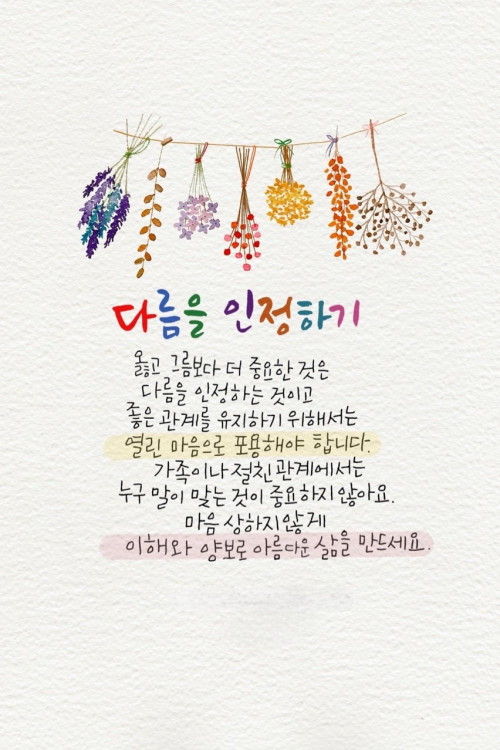 다름을 인정하기
옳고 그름보다 더 중요한 것은
다름을 인정하는 것이고
좋은 관계를 유지하기 위해서는
열린 마음으로 포용해야 합니다.
가족이나 절친 관계에서는
누구 말이 맞는 것이 중요하지 않아요.
마음 상하지 않게
이해와 양보로 아름다운 삶을 만드세요.